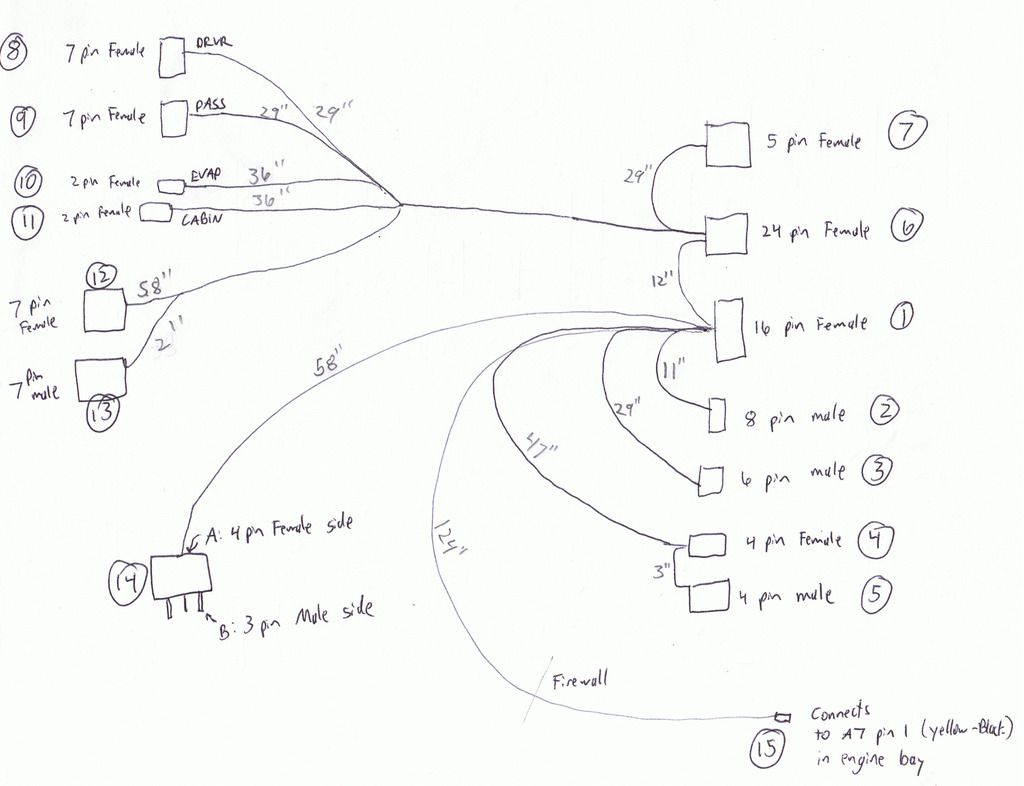 8 7 pin Female DRVR
9 7 pin Female PASS 29" 29"
10 2 pin Female EVAP 36"
11 2 pin Female CABIN 36"
12
7 pin
Female
58"
2"
7 pin
male
13
29"
5 pin Female 7
24 pin Female 6
12"
16 pin Female 1
58"
11"
8 pin male 2
29"
6 pin male 3
47"
4 pin Female 4
3"
4 pin male 5
124"
A: 4 pin Female side
14
B: 3 pin Male side
Firewall
15
Connects
to A7 pin 1 (yellow-Black)
in engine bay